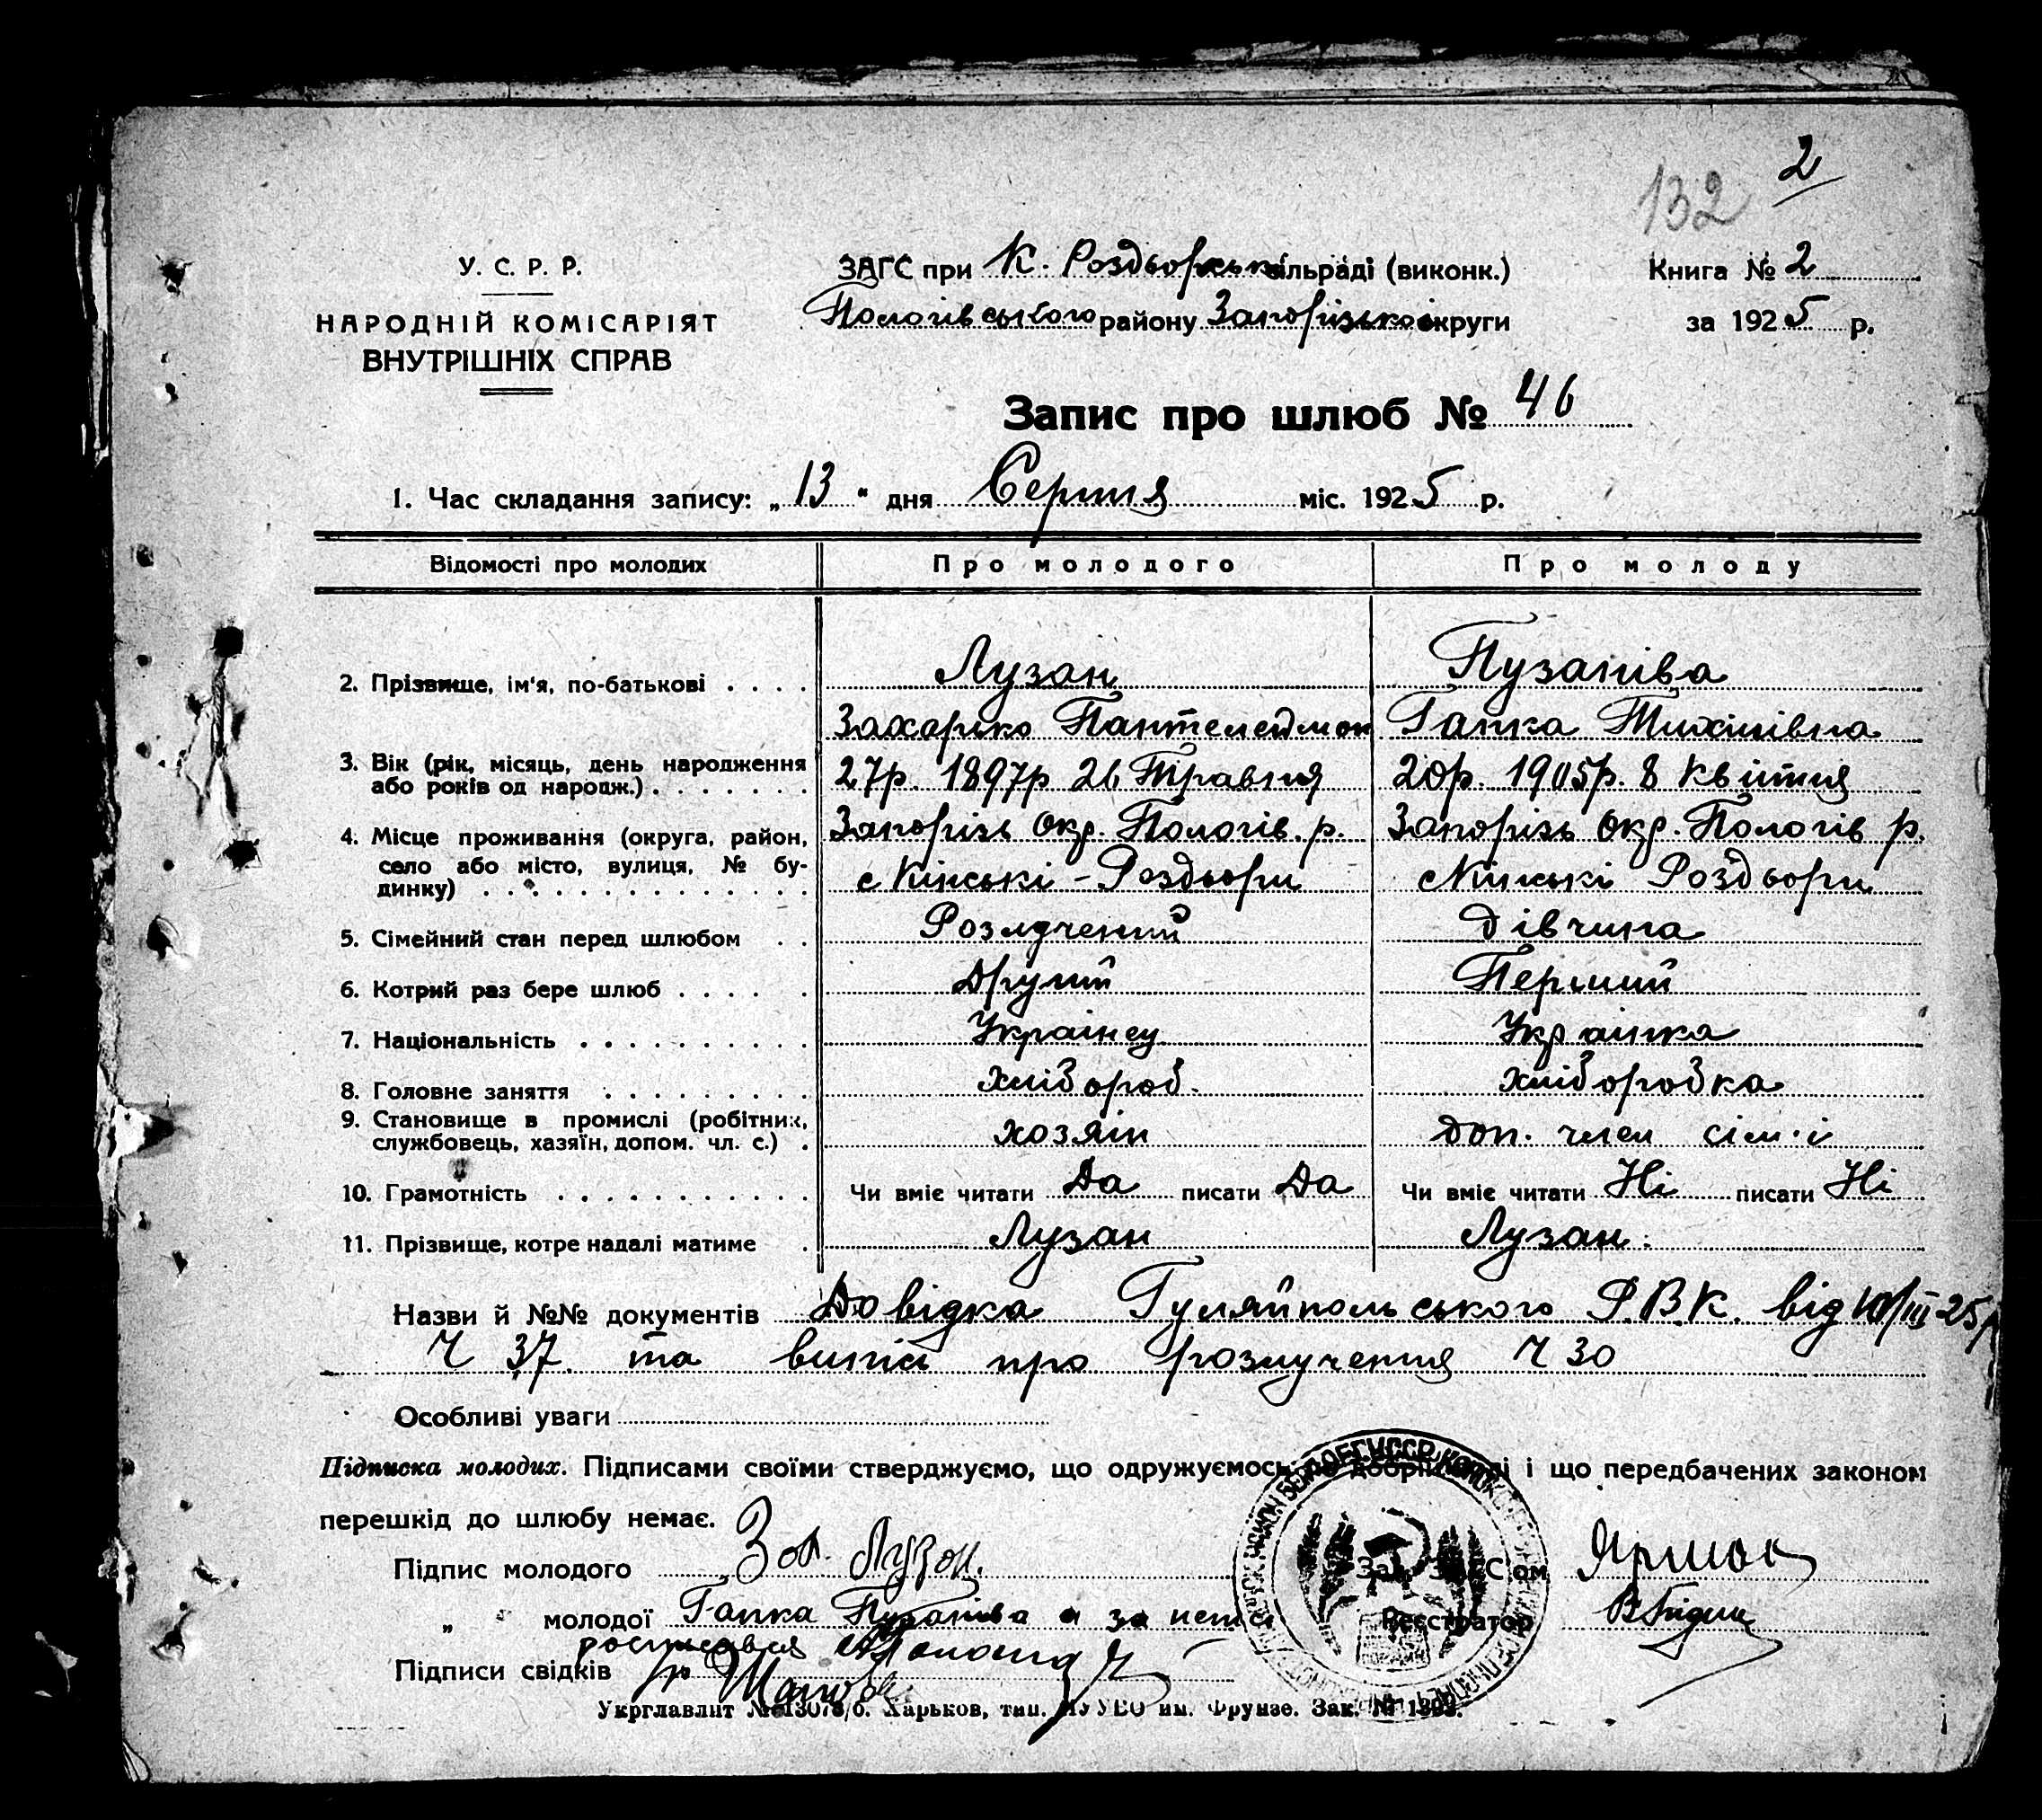 2
132
У. С. Р. Р.
НАРОДНІЙ КОМІСАРІЯТ
ВНУТРІШНІХ СПРАВ
ЗАГС при К. Роздьорській сільраді (виконк.)
Пологівського району Запорізької округи
Книга № 2
за 1925 р.
Запис про шлюб № 46
1. Час складання запису: „13" дня Серпня міс. 1925 р.
Відомості про молодих Про молодого Про молоду
2. Прізвище, ім'я, по-батькові . . . . Лузан Пузанівa
Захарько Пантелеймон Гапка Тихонівна
3. Вік (рік, місяць, день народження 27р. 1897р 26 Травня 20р. 1905р. 8 Квітня
або років од народж.) . . . . . . .
4. Місце проживання (округа, район, Запорізь окр. Пологів. р. Запорізь окр. Пологів р.
село або місто, вулиця, № бу-
динку) . . . . . . . . . . . . . . с Кінські-Роздьори с Кінські Роздьори
5. Сімейний стан перед шлюбом . . Розлучений дівчина
6. Котрий раз бере шлюб . . . . . Другий Перший
7. Національність . . . . . . . . . . Українец Українка
8. Головне заняття . . . . . . . . . хлібороб. хліборобка
9. Становище в промислі (робітник,
службовець, хазяїн, допом. чл. с.) . хозяїн доп. член сім'ї
10. Грамотність . . . . . . . . . . . Чи вміє читати Да писати Да Чи вміє читати Ні писати Ні
11. Прізвище, котре надалі матиме . Лузан Лузан.
Назви й №№ документів Довідка Гуляйпольського Р.В.К. від 10/III 25р
Ч 37 та випис про розлучення Ч 30
Особливі уваги
Підписка молодих. Підписами своїми стверджуємо, що одружуємось по добрій волі і що передбачених законом
перешкід до шлюбу немає.
Підпис молодого Зах. Лузан. Зав. ЗАГС'ом
„ молодої Гапка Пузанівa а за неї Реєстратор
росписався
Підписи свідків
Укрглавлит № 13078/б. Харьков, тип. УУВО им. Фрунзе. Зак. №